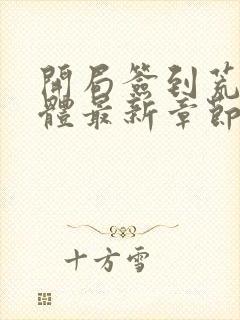 開局簽到荒
體最新章節
十方雪